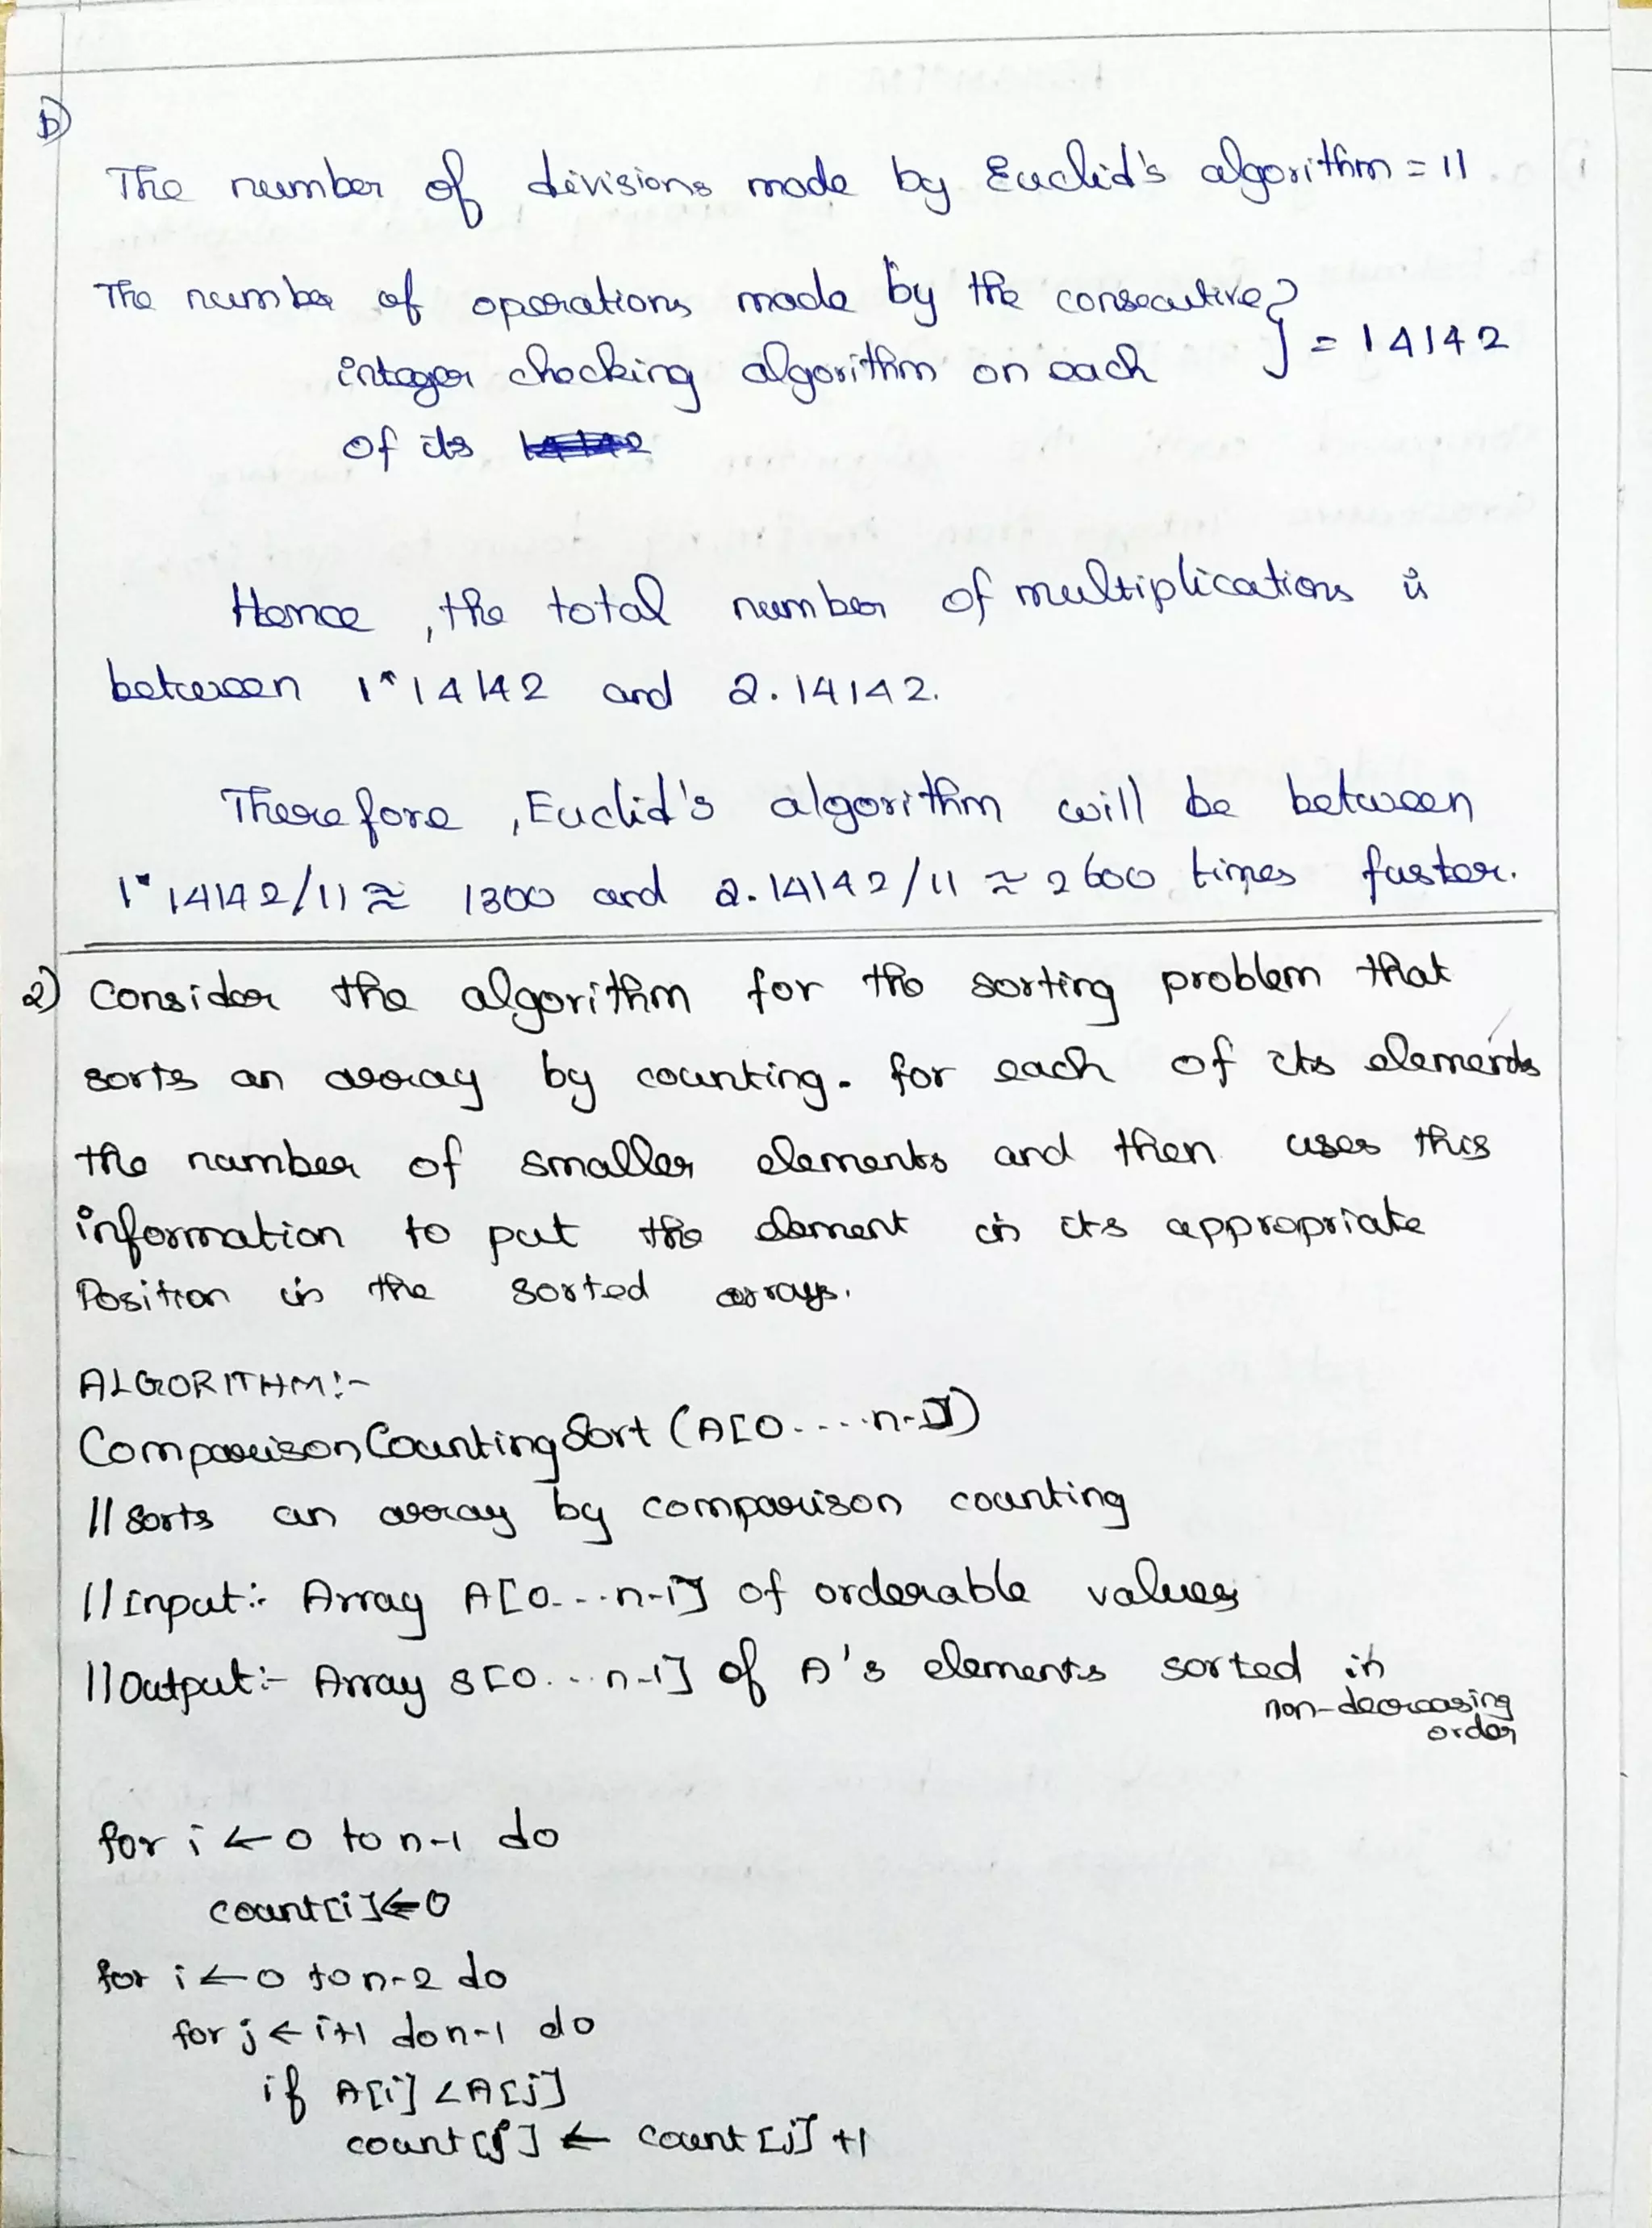 b)
The number of divisions made by Euclid's algorithm = 11
The number of operations made by the consecutive
integer checking algorithm on each } = 14142
of its
Hence , the total number of multiplications is
between 1*14142 and 2.14142.
Therefore , Euclid's algorithm will be between
1*14142/11 ≈ 1300 and 2.14142/11 ≈ 2600 times faster.
2) Consider the algorithm for the sorting problem that
sorts an array by counting. for each of its elements
the number of smaller elements and then uses this
information to put the element in its appropriate
Position in the sorted arrays.
ALGORITHM:-
Comparison Counting Sort (A[0....n-1])
// Sorts an array by comparison counting
// Input:- Array A[0...n-1] of orderable values
// Output:- Array S[0...n-1] of A's elements sorted in
non-decreasing
order
for i ← 0 to n-1 do
count[i] ← 0
for i ← 0 to n-2 do
for j ← i+1 do n-1 do
if A[i] < A[j]
count[j] ← count[j] +1